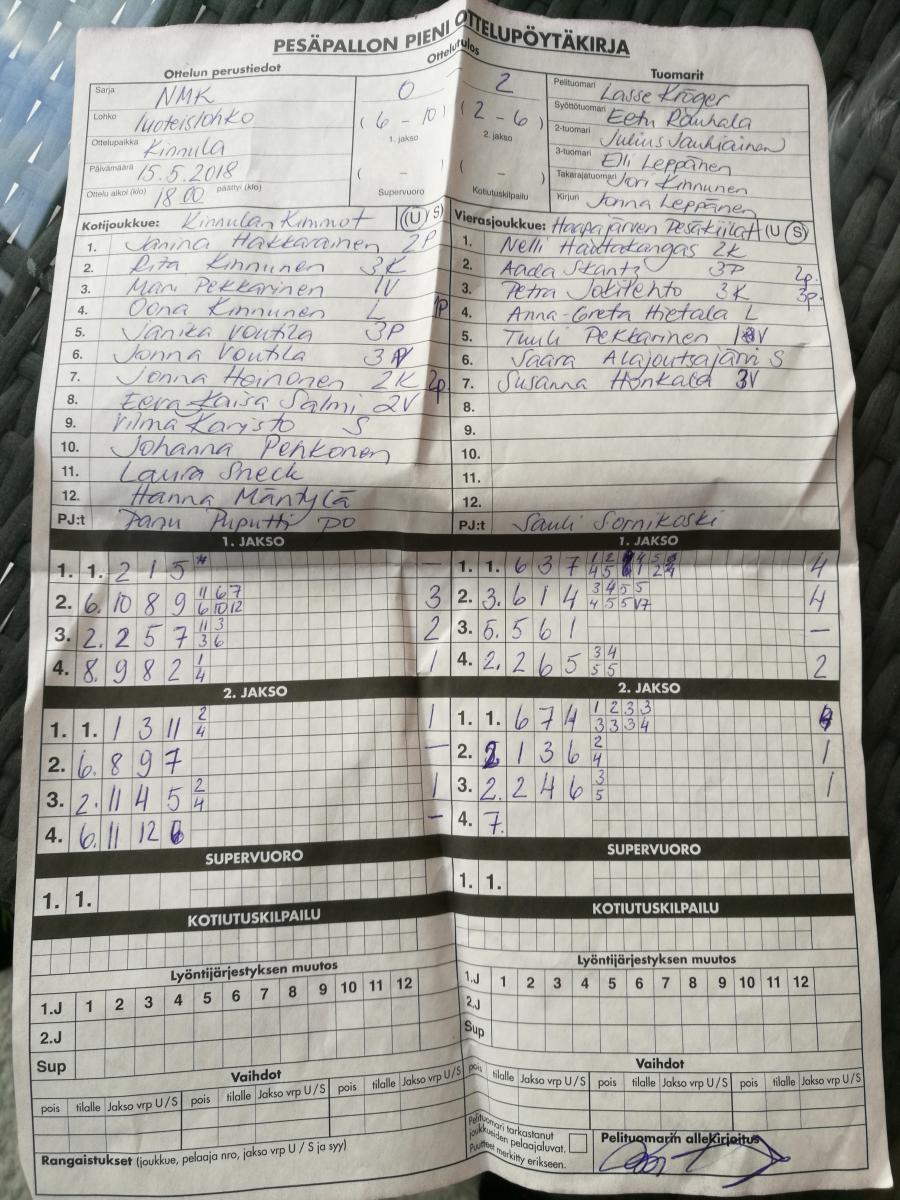 PESÄPALLON PIENI OTTELUPÖYTÄKIRJA
Ottelun perustiedot
Ottelutulos
Tuomarit
Sarja NMK
Lohko luoteislohko
Ottelupaikka Kinnula
Päivämäärä 15.5.2018
Ottelu alkoi (klo) 18.00 päättyi (klo)
0 2
(6 - 10) (2 - 6)
1. jakso 2. jakso
( - ) ( - )
Supervuoro Kotiutuskilpailu
Pelituomari Lasse Kröger
Syöttötuomari Eetu Rauhala
2-tuomari Julius Jauhiainen
3-tuomari Elli Leppänen
Takarajatuomari Jori Kinnunen
Kirjuri Jonna Leppänen
Kotijoukkue: Kinnulan Kimmot (U/S)
1. Janina Hakkarainen 2P
2. Rita Kinnunen 3K
3. Mari Pekkarinen 1V
4. Oona Kinnunen L 1P
5. Janika Voutila 3P
6. Jonna Voutila 3V
7. Jonna Heinonen 2K 2p.
8. Eeva Kaisa Salmi 2V
9. Vilma Karisto S
10. Johanna Pehkonen
11. Laura Sneck
12. Hanna Mäntylä
PJ:t Panu Puputti PO
Vierasjoukkue: Haapajärven Pesäkiilat (U/S)
1. Nelli Hautakangas 2K
2. Aada Skantz 3P 2p.
3. Petra Jokilehto 3K 3p.
4. Anna-Greta Hietala L
5. Tuuli Pekkarinen V
6. Saara Alajoutsijärvi S
7. Susanna Honkala 3V
8.
9.
10.
11.
12.
PJ:t Sauli Sornikoski
1. JAKSO
1. 1. 2 1 5 -
2. 6. 10 8 9 11 6 7 3
6 10 12
3. 2. 2 5 7 11 3 2
3 6
4. 8. 9 8 2 1 1
4
1. JAKSO
1. 1. 6 3 7 1 2 4 5 4
4 5 1 2
2. 3. 6 1 4 3 4 5 5 4
4 5 5 7
3. 5. 5 6 1 -
4. 2. 2 6 5 3 4 2
5 5
2. JAKSO
1. 1. 1 3 11 2 1
4
2. 6. 8 9 7 -
3. 2. 11 4 5 2 1
4
4. 6. 11 12 6 -
2. JAKSO
1. 1. 6 7 4 1 2 3 3 4
3 3 3 4
2. 2. 1 3 6 2 1
4
3. 2. 2 4 6 3 1
5
4. 7.
SUPERVUORO
1. 1.
SUPERVUORO
1. 1.
KOTIUTUSKILPAILU
KOTIUTUSKILPAILU
Lyöntijärjestyksen muutos
1.J 1 2 3 4 5 6 7 8 9 10 11 12
2.J
Sup
Lyöntijärjestyksen muutos
1.J 1 2 3 4 5 6 7 8 9 10 11 12
2.J
Sup
Vaihdot
pois tilalle Jakso vrp U/S pois tilalle Jakso vrp U/S pois tilalle Jakso vrp U/S
Vaihdot
pois tilalle Jakso vrp U/S pois tilalle Jakso vrp U/S pois tilalle Jakso vrp U/S
Rangaistukset (joukkue, pelaaja nro, jakso vrp U / S ja syy)
Pelituomari tarkastanut
joukkueiden pelaajaluvat.
Puutteet merkitty erikseen.
Pelituomarin allekirjoitus